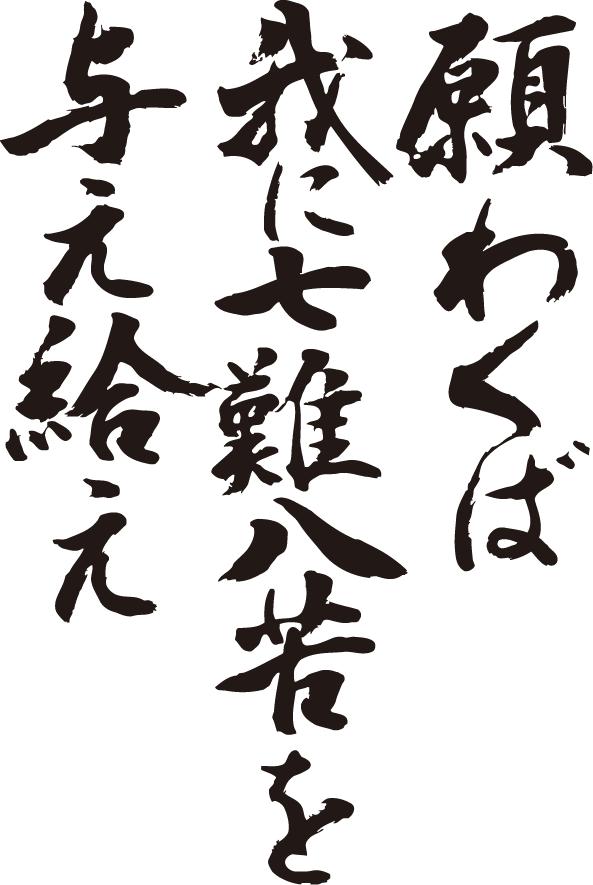 願わくば
我に七難八苦を
与え給え